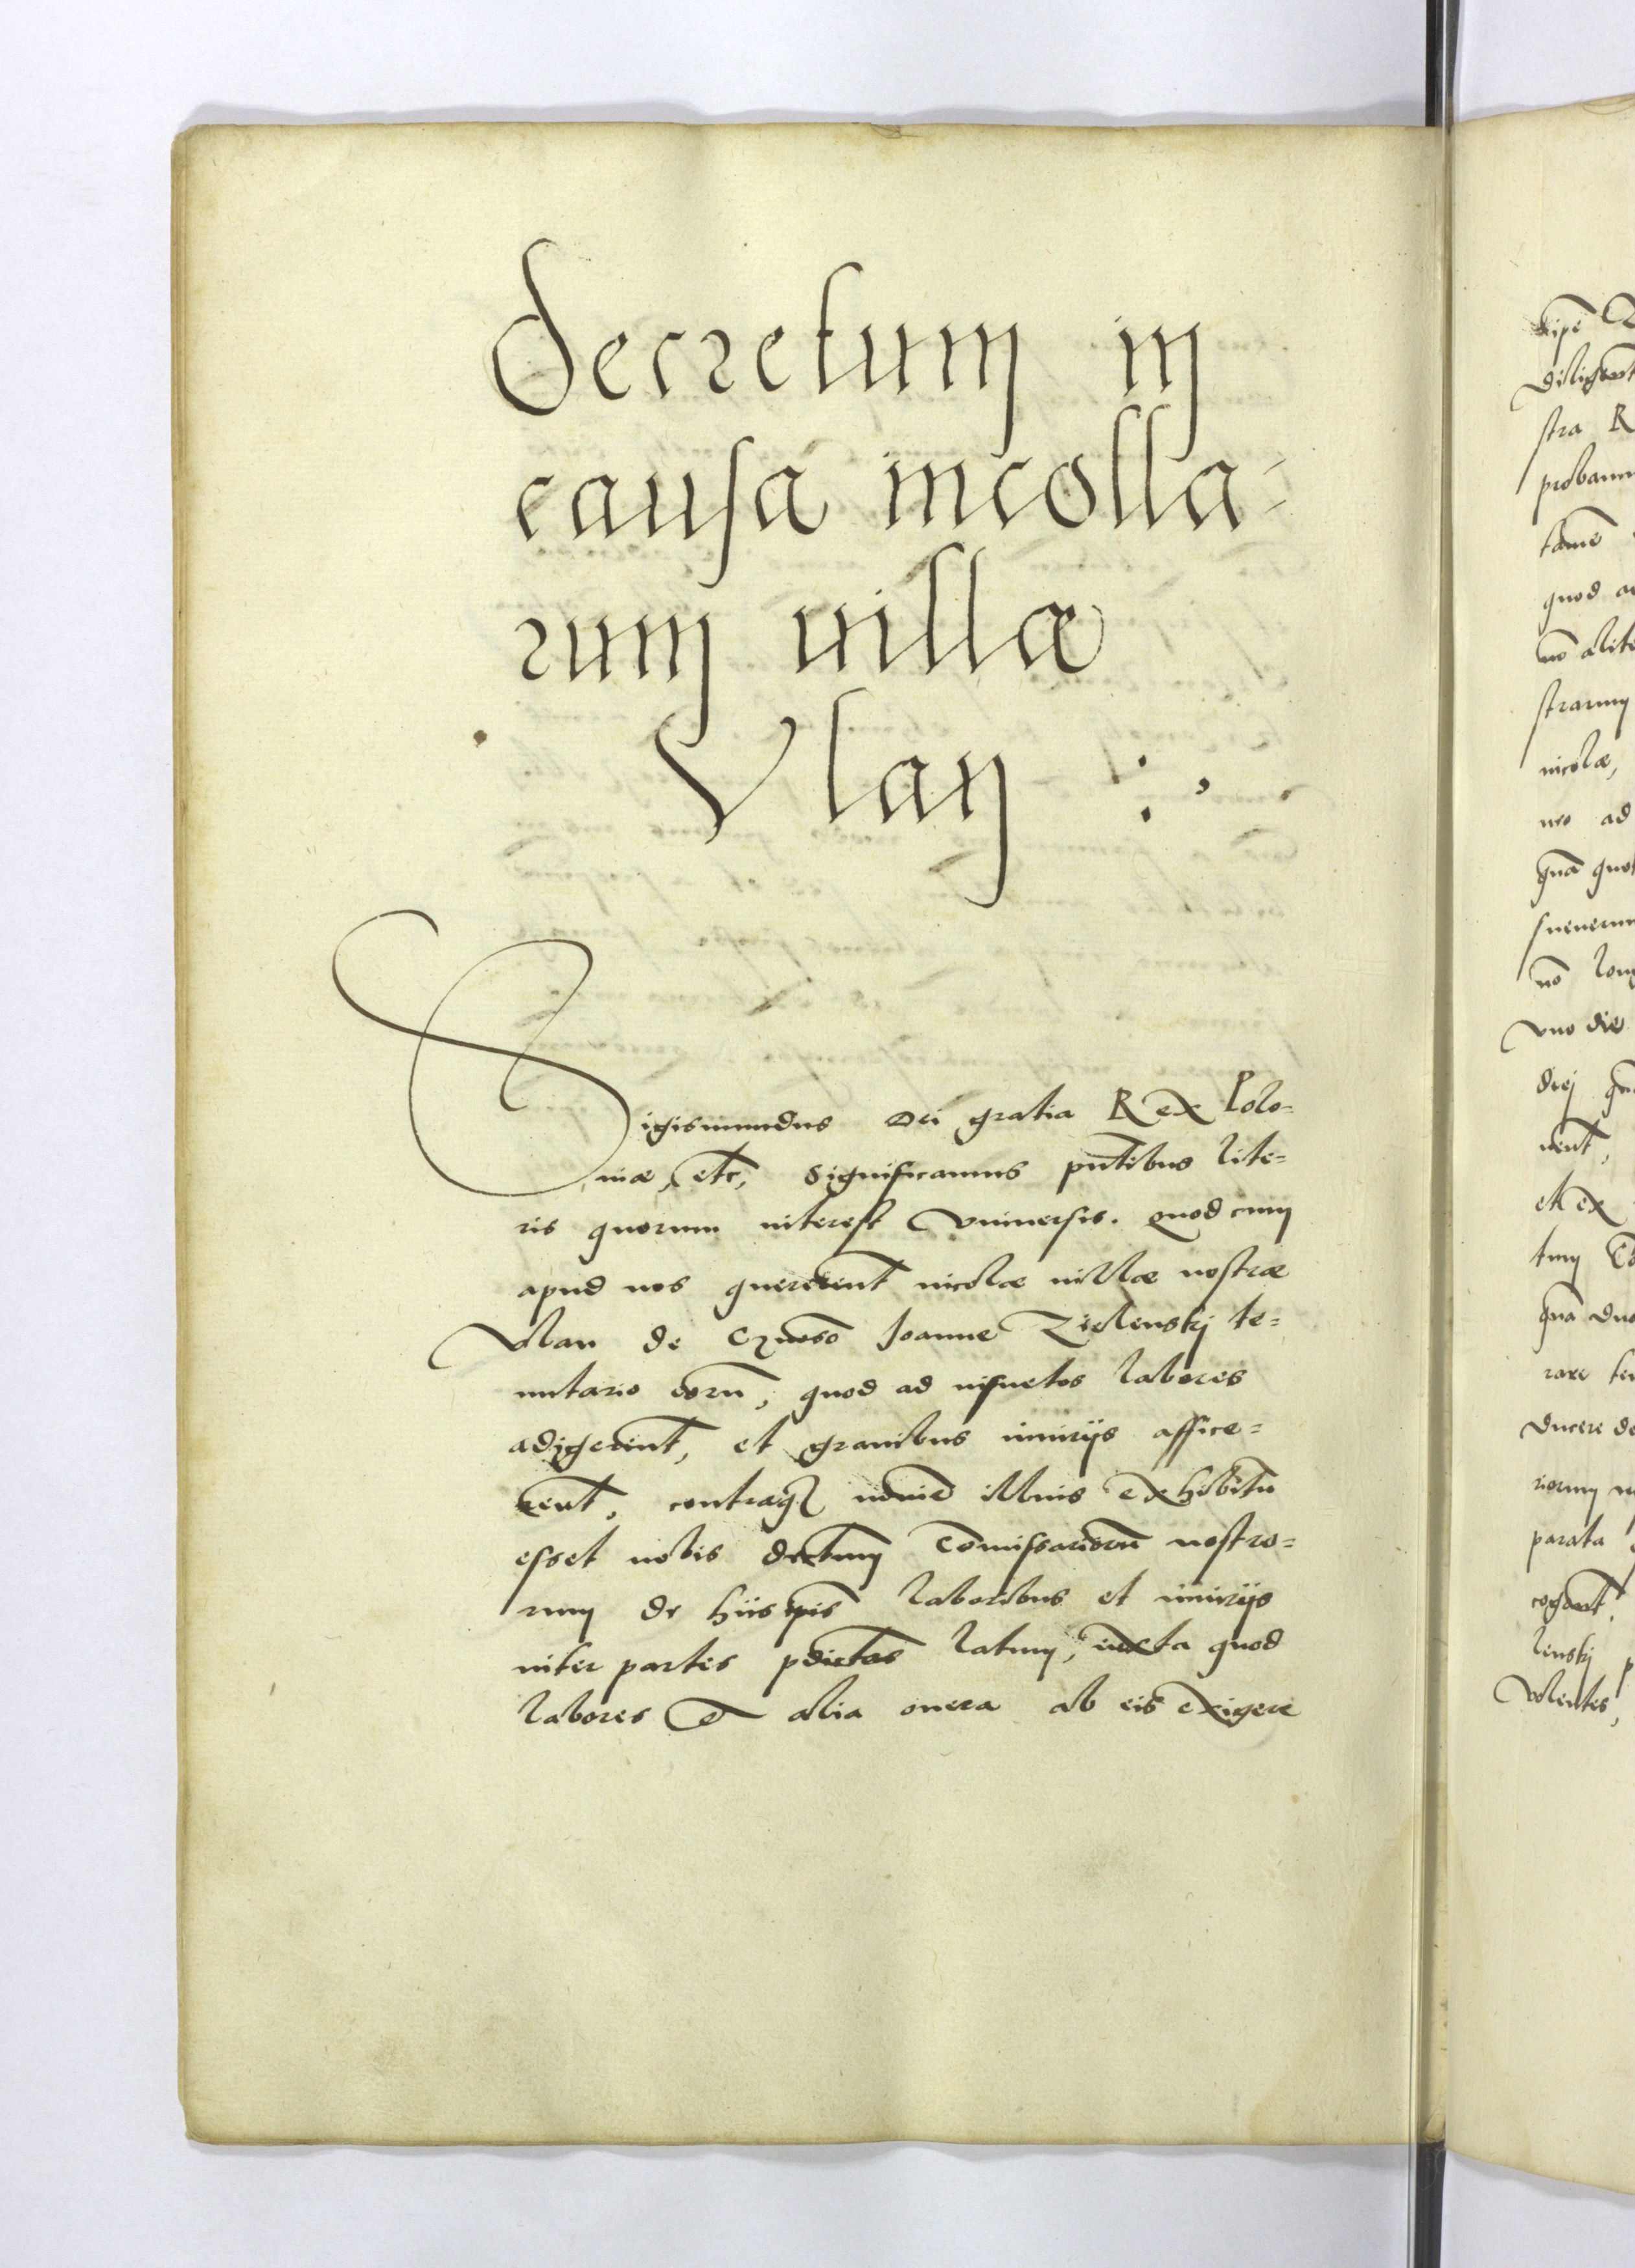 Decretum in
causa incolla-
rum villæ
Vlan :,
Sigismundus Dei gratia Rex Polo-
niæ, etc, Significamus pntibus lite=
ris quorum interest Vniuersis. quod cum
apud nos quererent incolæ villæ nostræ
Vlan de Joanne Zielenskj te=
nutario eorū, quod ad insuetos labores
adigerent, et grauibus iniurijs affice=
rent, contraq illius exhibitū
esset nobis comissariorū nostro=
rum de hiis ipis laboribus et iniurijs
inter partes pdictas latum, iuxta quod
labores et alia onera ab eis exigere
kipē
diligent
stra R
tamē
quod
nō alite
strarum
incolæ,
uro ad
quā quot
sueuerun
nō long
vno die
diej
uent,
et ex
tum
quā duo
rare
ducere de
riorum
parata
cogant.
lenskj p
Volentes,